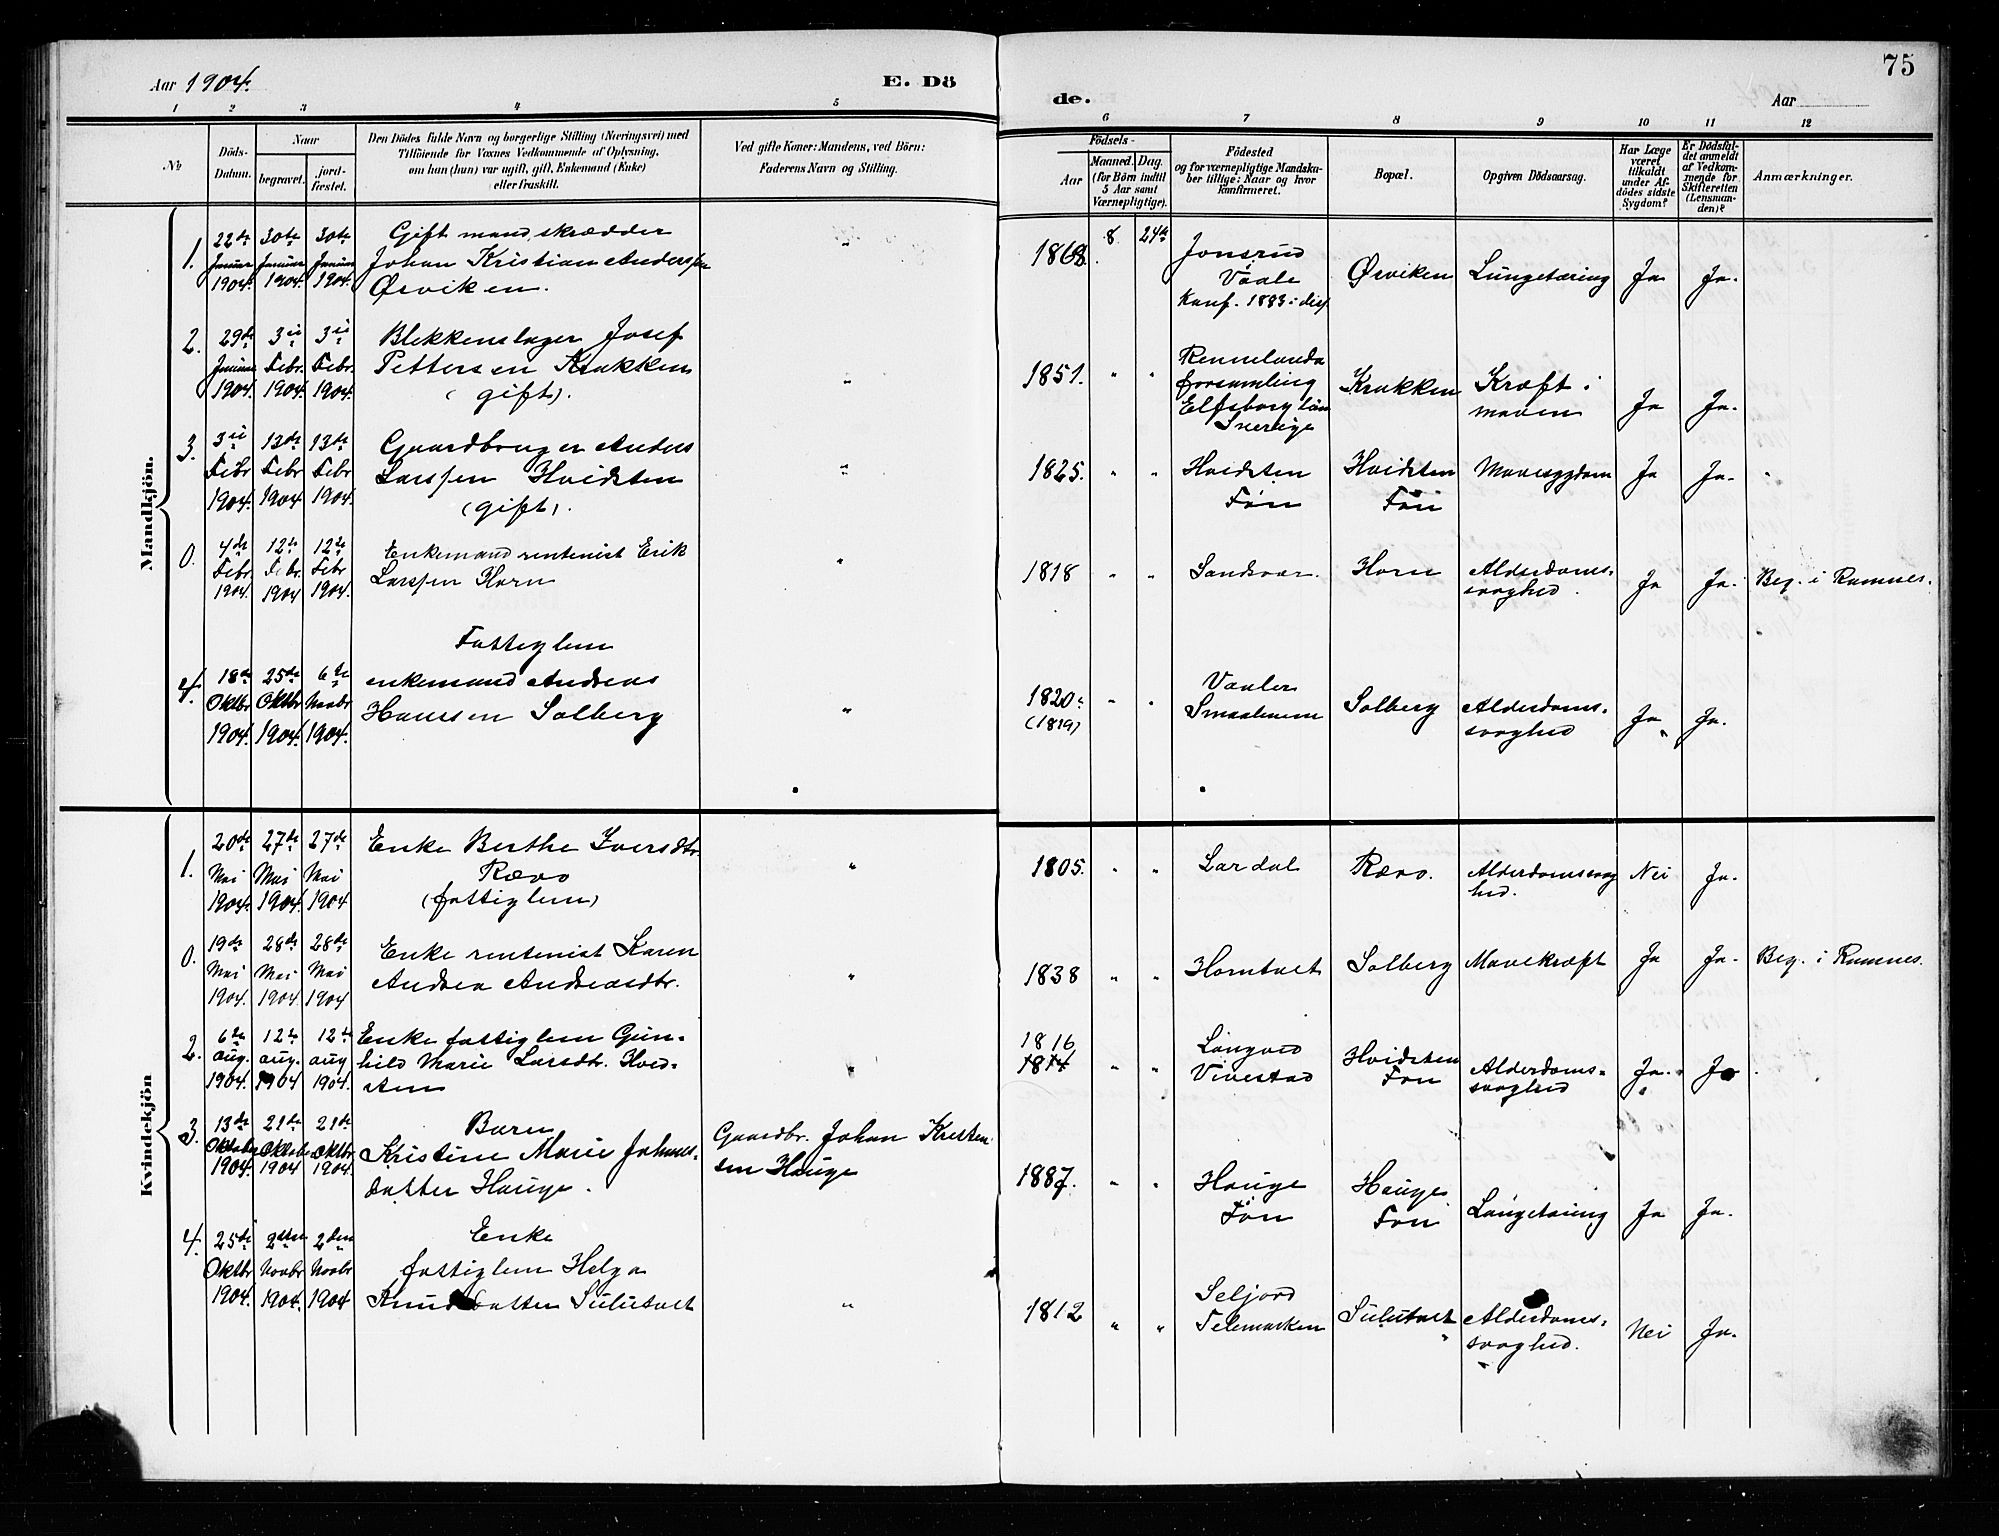 75
Aar 1904.
E. Dö
de.
Aar
1 2 3 4 5
6 7 8 9 10 11 12
No
Döds-
Datum.
Naar
begravet.
jord-
fæstet.
Den Dödes fulde Navn og borgerlige Stilling (Næringsvei) med
Tilföiende for Voxnes Vedkommende af Oplysning,
om han (hun) var ugift, gift, Enkemand (Enke)
eller fraskilt.
Ved gifte Koner: Mandens, ved Börn:
Faderens Navn og Stilling.
Födsels-
Aar
Maaned.
Dag.
(for Börn indtil
5 Aar samt
Værnepligtige).
Födested
og for værnepligtige Mandska-
ber tillige: Naar og hvor
konfirmeret.
Bopæl.
Opgiven Dödsaarsag.
Har Læge
været
tilkaldt
under Af-
dödes sidste
Sygdom?
Er Dödsfal-
det anmeldt
af Vedkom-
mende for
Skifteretten
(Lensman-
den)?
Anmærkninger.
Mandkjön.
1. 22de Januar 1904. 30te Januar 1904. 30te Januar 1904.
Gift mand, skrædder
Johan Kristian Anderssen
Ørviken.
" 1868. 8. 24de
Jonsrud
Vaale
Konf. 1883 i
Ørviken Lungetæring Ja Ja.
2. 29de Januar 1904. 3die Febr. 1904. 3die Febr. 1904.
Blekkenslager Josef
Pettersen Krakken
(gift).
" 1851. " "
Rennelanda
forsamling
Elfsborg län
Sverige
Krakken Kræft i
maven Ja Ja.
3. 3die Febr 1904. 13de Febr 1904. 13de Febr 1904.
Gaardbruger Anders
Larssen Hvidsten
(gift).
" 1825. " "
Hvidsten
Fön
Hvidsten
Fön
Mavesygdom Ja Ja.
0. 4de Febr 1904. 12te Febr. 1904 12te Febr 1904.
Enkemand rentenist Erik
Larssen Horn
" 1818 " " Sandsvær. Horn Alderdoms-
svaghed. Ja Ja. Beg. i Ramnes.
4. 18de Oktbr 1904. 25de Oktbr 1904. 6te Novbr 1904.
Fattiglem
enkemand Andreas
Hanssen Solberg
" 1820
(1819) " "
Vaaler
Smaalenene
Solberg Alderdoms-
svaghed Ja Ja.
Kvindekjön
1. 20de Mai 1904. 27de Mai 1904. 27de Mai 1904
Enke Berthe Iversdtr.
Rævo
(fattiglem)
" 1805. " " Lardal Rævo. Alderdomssvag
hed. Nei Ja.
0. 19de Mai 1904. 28de Mai 1904 28de Mai 1904
Enke rentenist Karen
Andrea Andreasdtr.
" 1838 " " Horntvet Solberg Mavekræft Ja Ja. Beg. i Ramnes.
2. 6te aug. 1904. 12te aug. 1904 12te aug 1904.
Enke fattiglem Gun-
hild Marie Larsdtr. Hvid-
sten
" 1816
1814 " "
Langved
Vivestad
Hvidsten
Fön
Alderdoms-
svaghed Ja. Ja.
3. 13de Oktober 1904. 21de Oktober 1904 21de Oktbr 1904.
Barn
Kristine Marie Johans-
datter Hauge.
Gaardbr. Johan Kristen-
sen Hauge
1887. " "
Hauge
Fön
Hauge
Fön
Lungetæring Ja Ja.
4. 25de Oktbr 1904. 2den Novbr 1904. 2den Novbr 1904
Enke
fattiglem Helga
Knudsdatter Sulutvet
" 1812 " "
Seljord
Telemarken
Sulutvet Alderdoms-
svaghed. Nei Ja.